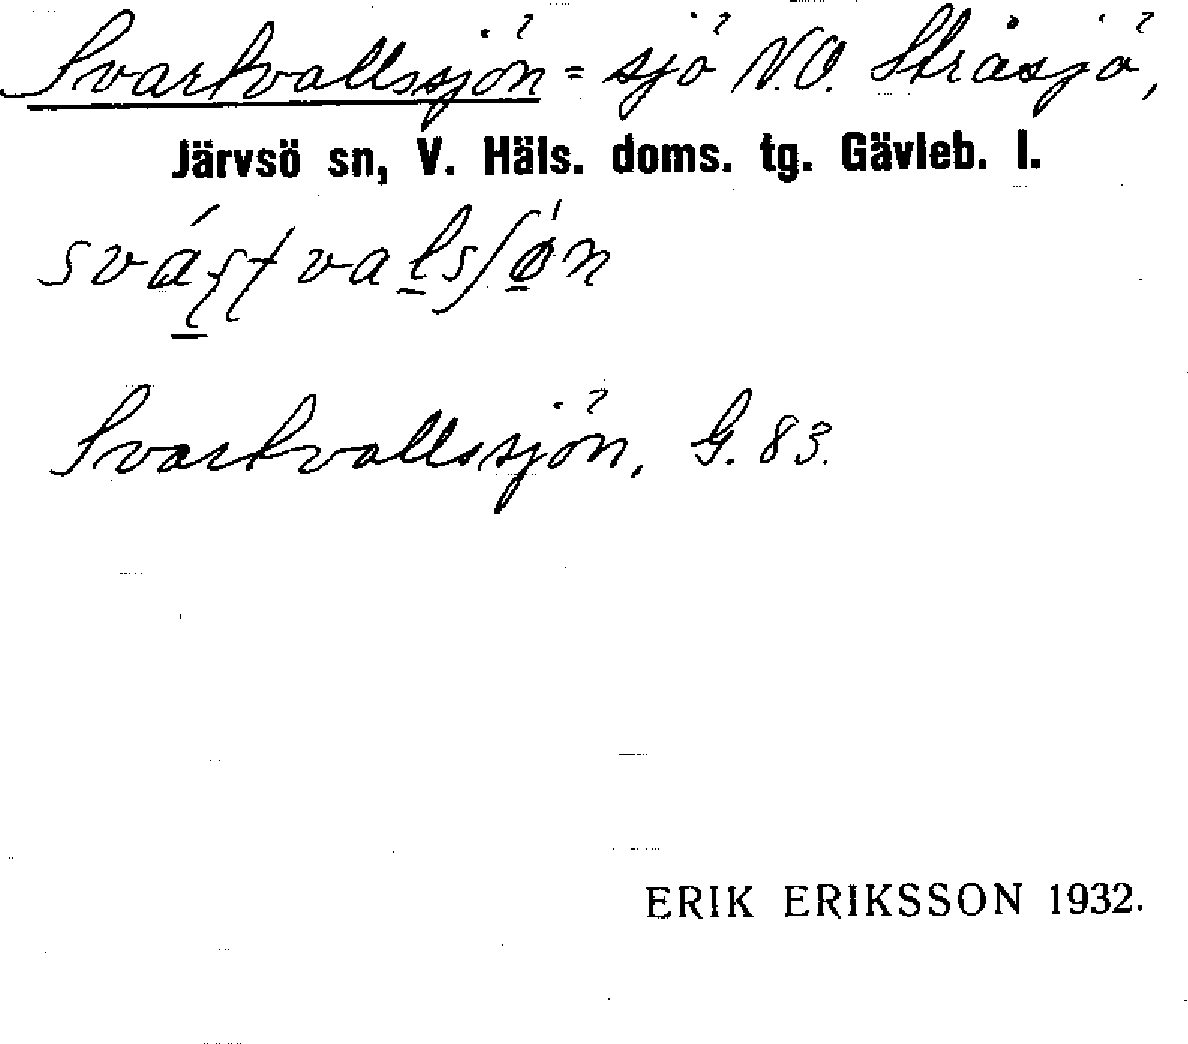 Svartvallssjön = sjö N.O. Stråsjö,
Järvsö sn, V. Häls. doms. tg. Gävleb. l.
Svartvallssjön, G. 83.
ERIK ERIKSSON 1932.